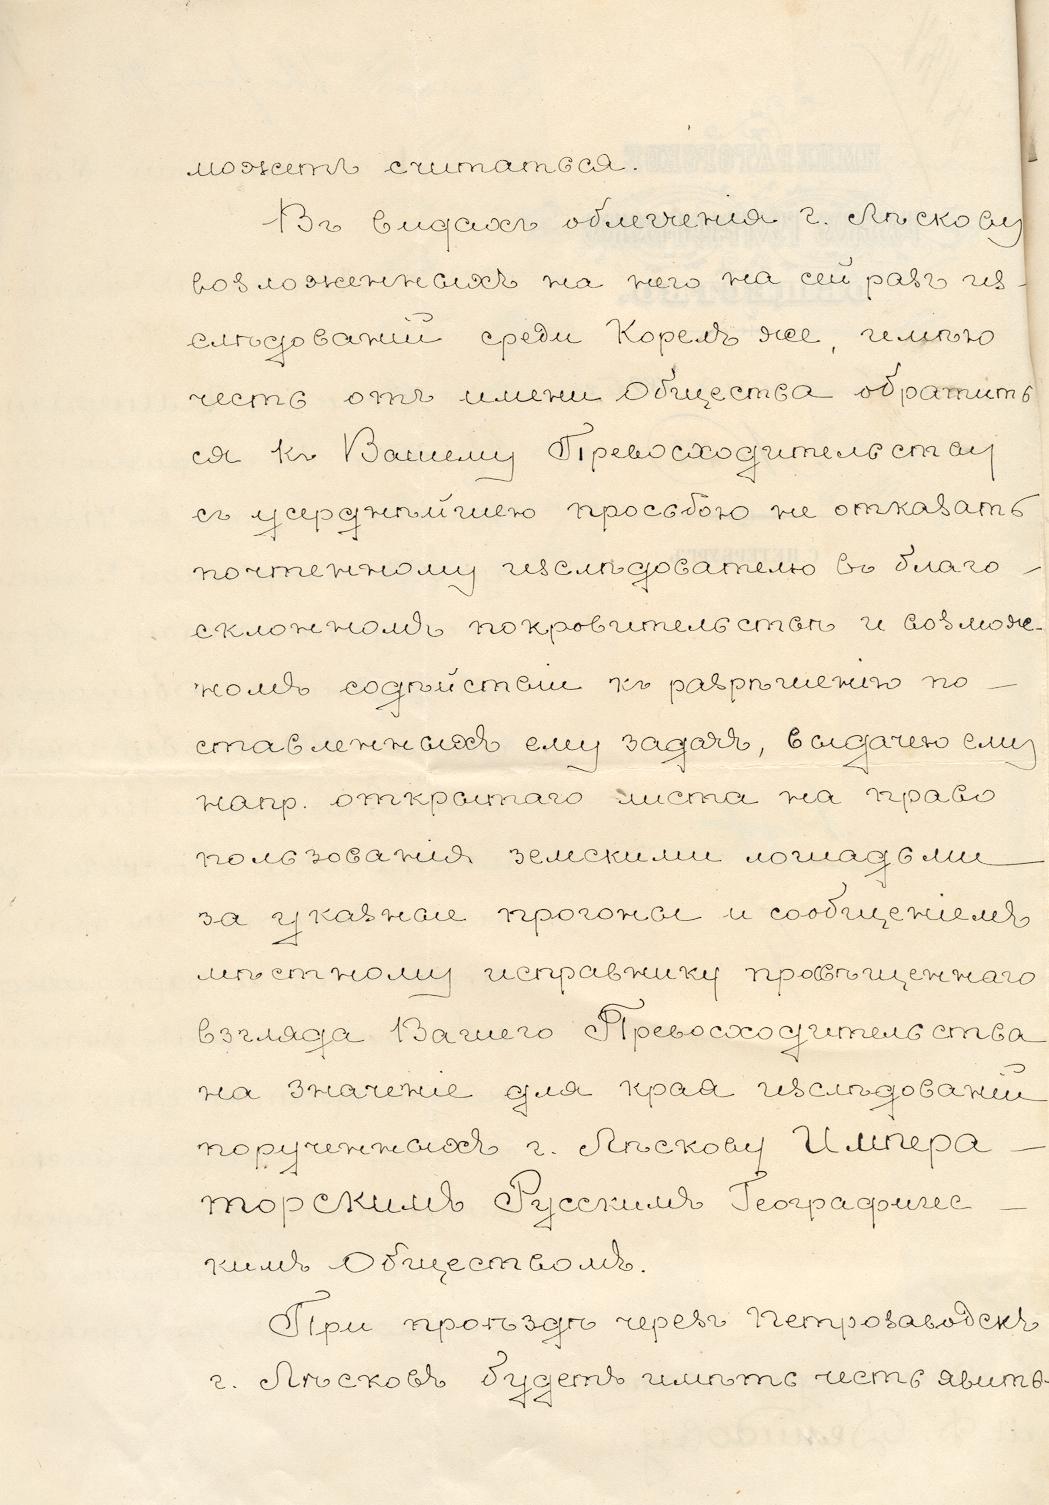 можетъ считаться.
Въ видахъ облегченія г. Лѣскову
возложенныхъ на него на сей разъ из-
слѣдованій среди Корелъ же, имѣю
честь отъ имени Общества обратить
ся къ Вашему Превосходительству
съ усерднѣйшею просьбою не отказать
почтенному изслѣдователю въ благо-
склонномъ покровительствѣ и возмож-
номъ содѣйствіи къ разрѣшенію по-
ставленныхъ ему задачъ, выдачею ему
напр. открытаго листа на право
пользованія земскими лошадьми
за указные прогоны и сообщеніемъ
мѣстному исправнику просвѣщеннаго
взгляда Вашего Превосходительства
на значеніе для края изслѣдованій
порученныхъ г. Лѣскову Импера-
торскимъ Русскимъ Географичес-
кимъ Обществомъ.
При проѣздѣ черезъ Петрозаводскъ
г. Лѣсковъ будетъ имѣть честь явить-